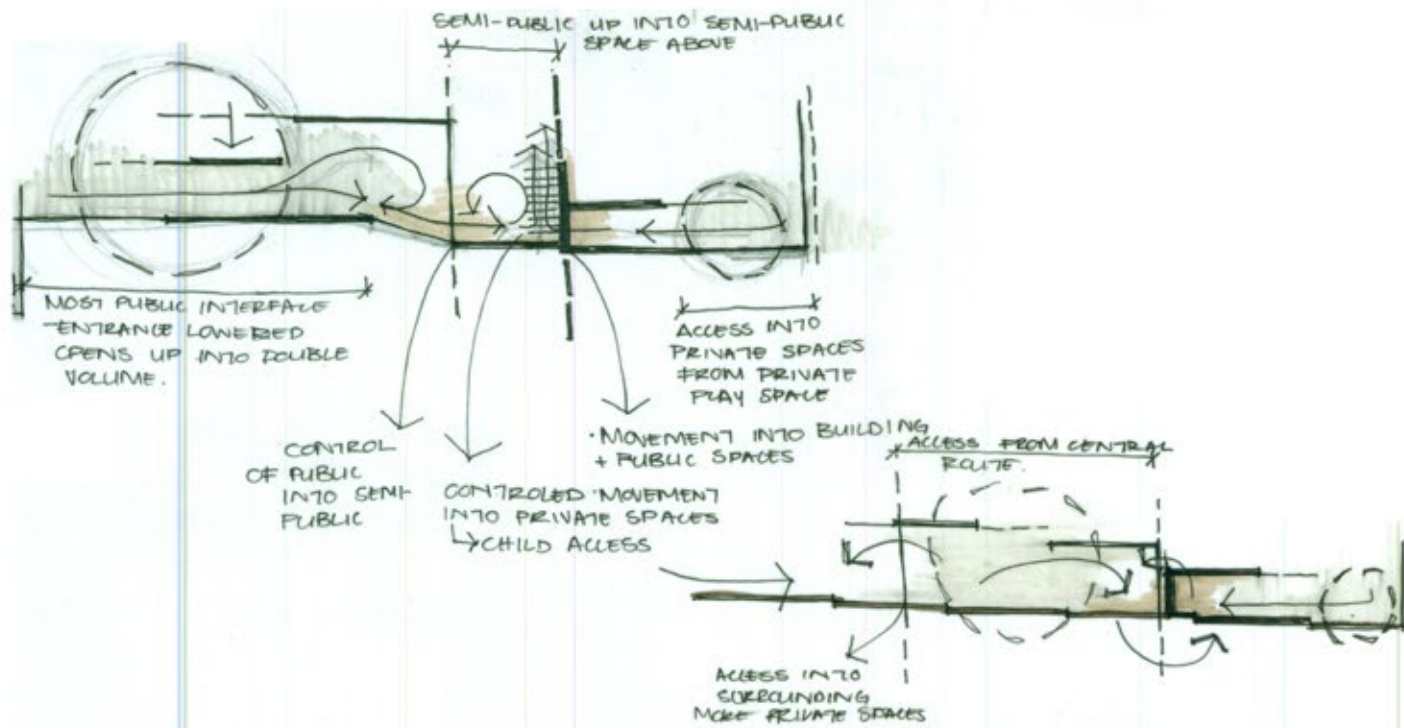 SEMI-PUBLIC UP INTO SEMI-PUBLIC
SPACE ABOVE
MOST PUBLIC INTERFACE
-ENTRANCE LOWERED
OPENS UP INTO DOUBLE
VOLUME.
ACCESS INTO
PRIVATE SPACES
FROM PRIVATE
PLAY SPACE
CONTROL
OF PUBLIC
INTO SEMI-
PUBLIC
CONTROLED MOVEMENT
INTO PRIVATE SPACES
↳CHILD ACCESS
·MOVEMENT INTO BUILDING
+ PUBLIC SPACES
ACCESS FROM CENTRAL
ROUTE.
ACCESS INTO
SURROUNDING
MORE PRIVATE SPACES